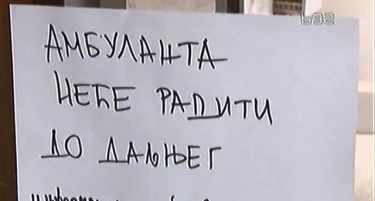 B92
АМБУЛАНТА
НЕЋЕ РАДИТИ
ДО ДАЉЊЕГ